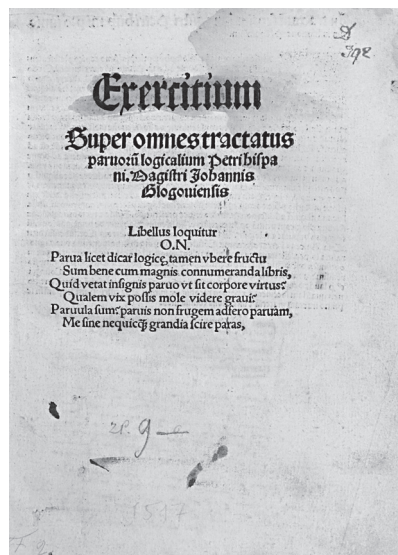 Exercitium
Super omnes tractatus
paruorū logicalium Petri hispa
ni. Magistri Johannis
Glogouiensis
Libellus loquitur
O.N.
Parua licet dicar logicę, tamen vbere fructu
Sum bene cum magnis connumeranda libris,
Quid vetat insignis paruo vt sit corpore virtus?
Qualem vix possis mole videre graui?
Paruula sum? paruis non frugem adfero paruam,
Me sine nequicq̃ grandia scire paras,